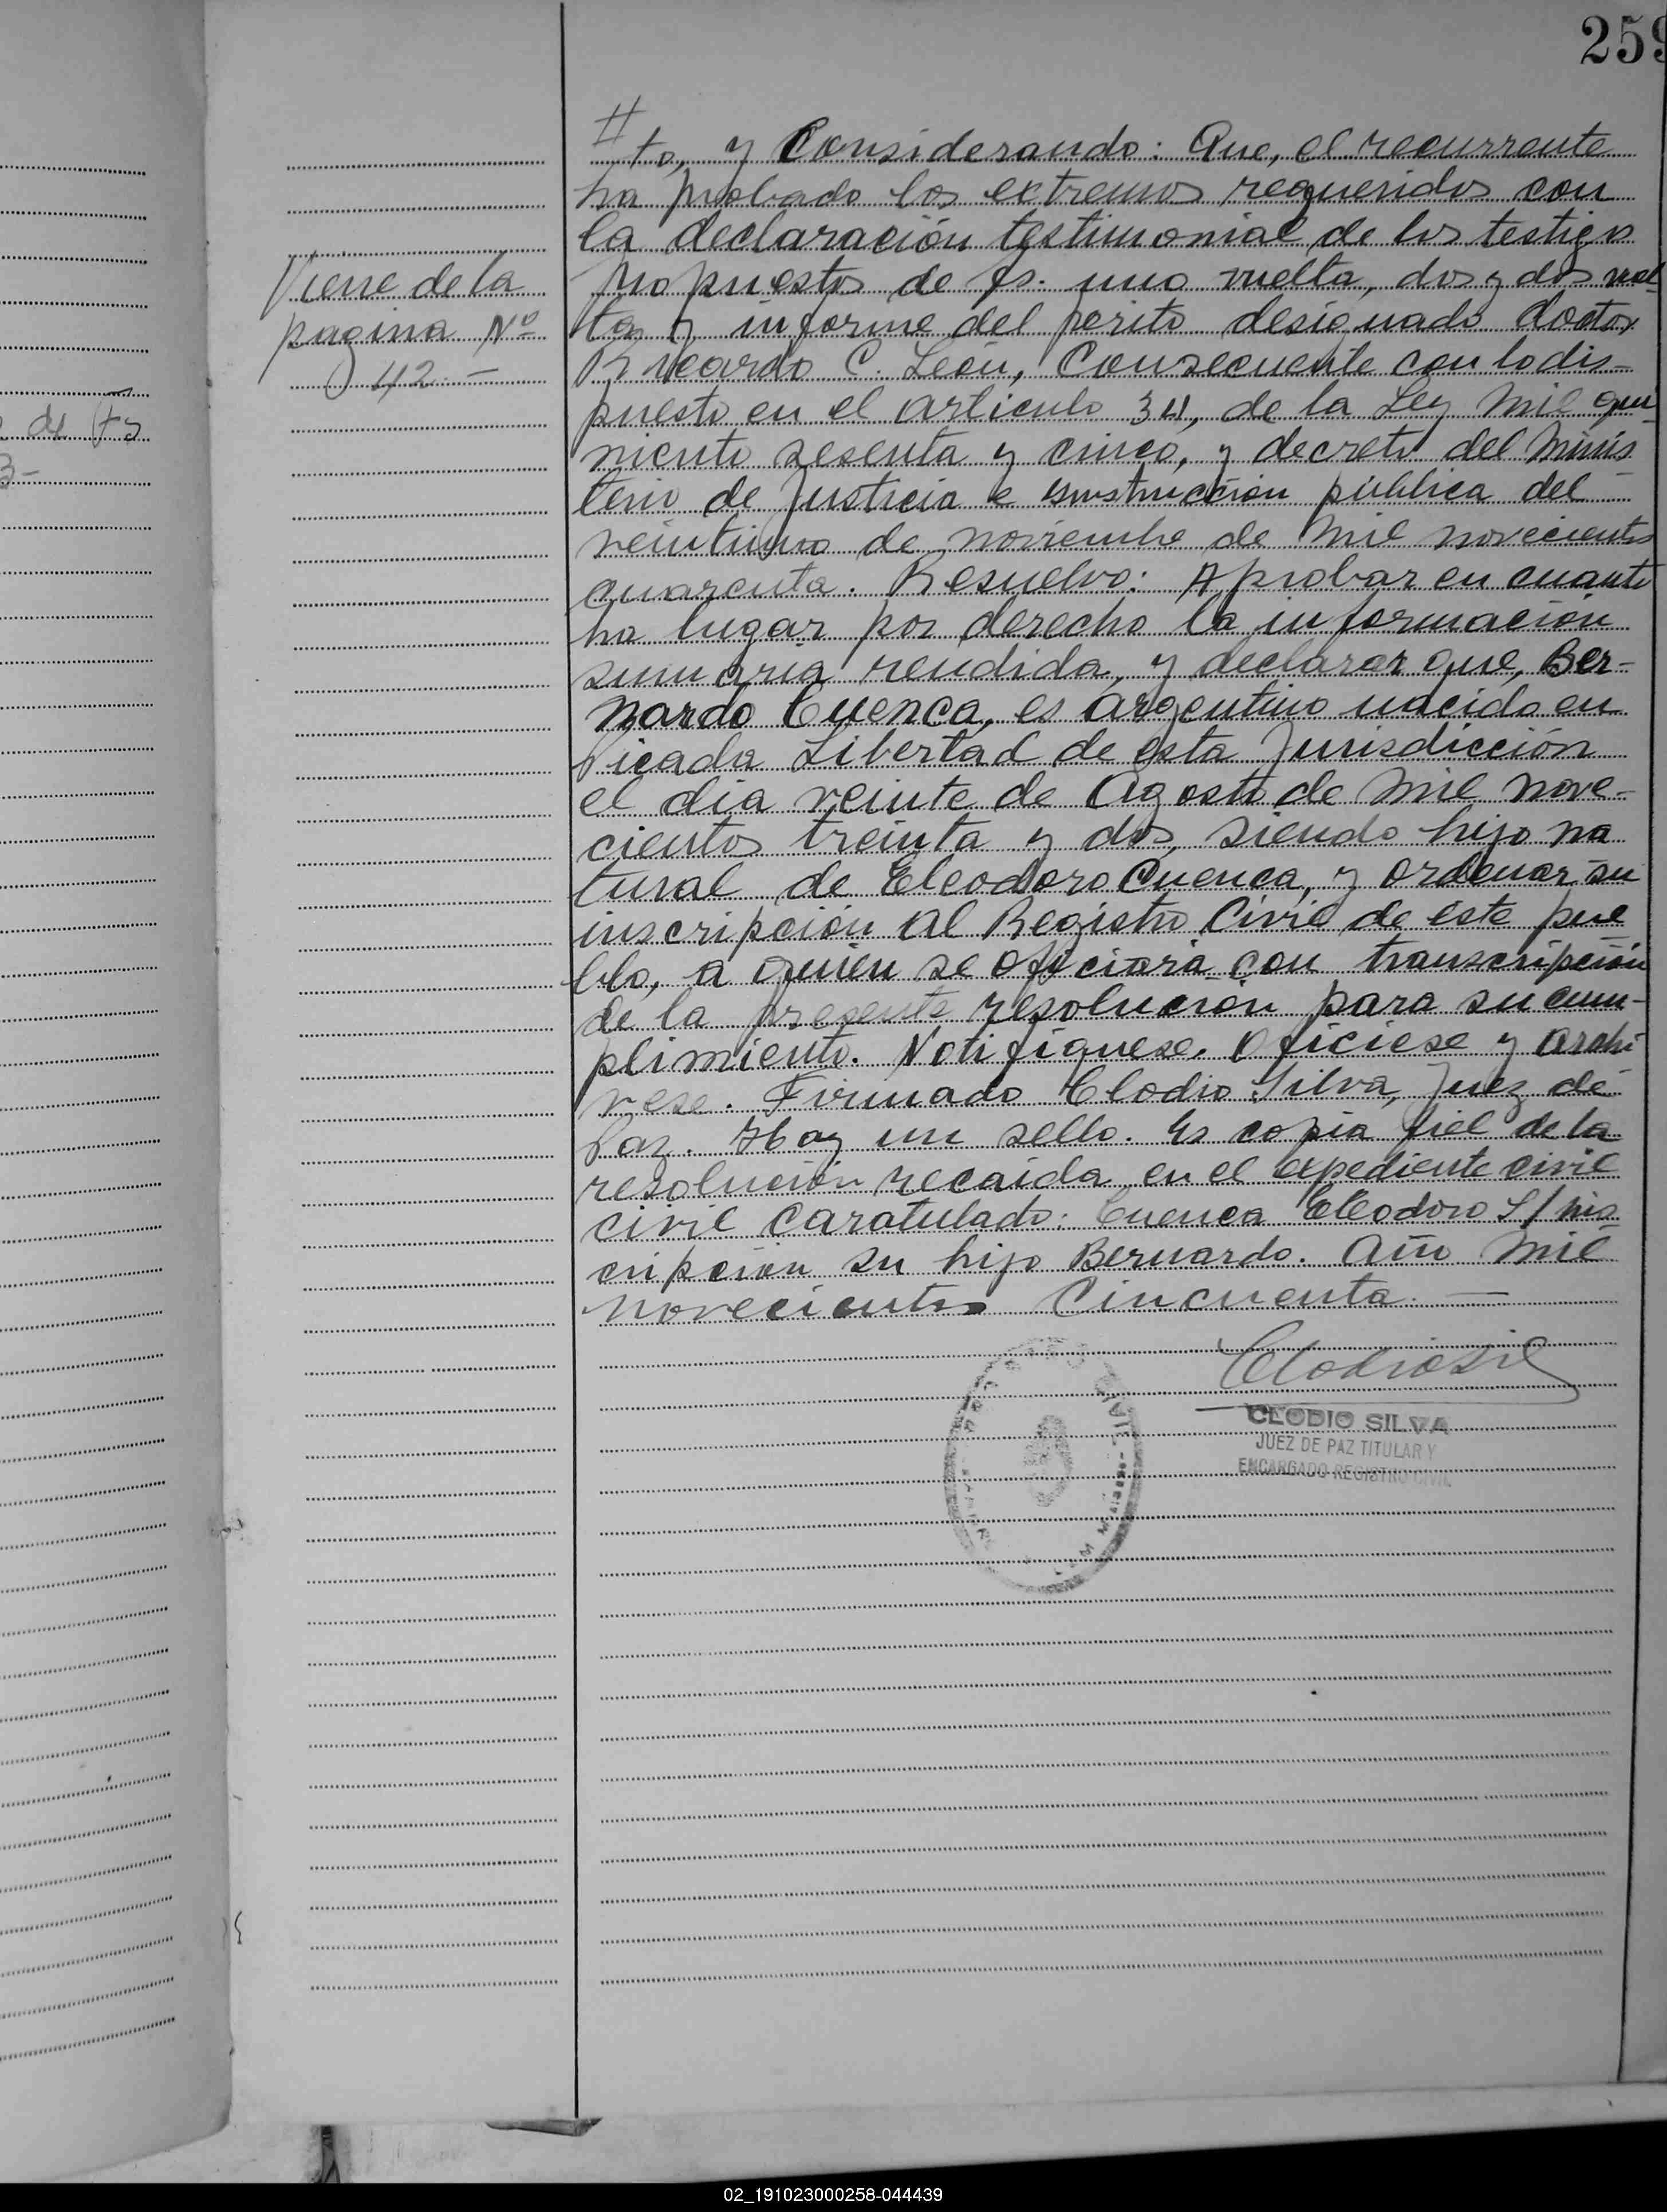 259
Viene de la
pagina Nº
42. —
de fs
3-
// to, y Considerando: Que, el recurrente
ha probado los extremos requeridos con
la declaración testimonial de los testigos
propuestos de fs. uno vuelta, dos y dos vuel-
ta y informe del perito designado doctor
Ricardo C. León, Consecuente con lo dis-
puesto en el articulo 34, de la Ley Mil qui-
niento sesenta y cinco, y decreto del Minis
terio de Justicia e Instrucción pública del
veintiuno de noviembre de mil novecientos
cuarenta. Resuelvo: Aprobar en cuanto
ha lugar por derecho la información
sumaria rendida, y declarar que, Ber-
nardo Cuenca, es argentino nacido en
Picada Libertad de esta Jurisdicción
el día veinte de Agosto de mil nove-
cientos treinta y dos, siendo hijo na
tural de Eleodoro Cuenca, y ordenar su
inscripción al Registro Civil de este pue
blo, a quien se oficiará con transcripción
de la presente resolución para su cum-
plimiento. Notifiquese. Oficiese y archi
vese. Firmado Clodio Silva, Juez de
Paz. Hay un sello. Es copia fiel de la
resolución recaída en el expediente civil
civil caratulado: Cuenca Eleodoro S/ ins
cripción su hijo Bernardo. Año mil
novecientos Cincuenta. —
Clodio Sil
CLODIO SILVA
JUEZ DE PAZ TITULAR Y
ENCARGADO REGISTRO CIVIL
02_191023000258-044439